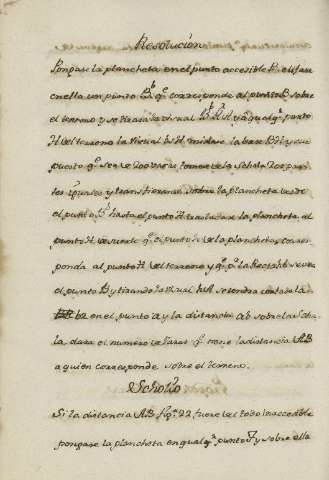 Resolucion
Pongase la plancheta en el punto accesible B elijase
en ella un punto b qe corresponda al punto B sobre
el terreno y se tirara la visual B A y a qualqr punto
H del terreno la visual b H midase la base B H y su
puesto qe sea de 200 varas tomese de la Schala 200 par
tes iguales y transfieranse sobre la plancheta desde
el punto b hasta el punto h trasladase la plancheta al
punto H de suerte qe el punto h de la plancheta corres
ponda al punto H del terreno y qe pr la Recta hb se vea
el punto B y tirando la visual hA se tendra cortada la
ba en el punto a y la distancia ab sobre la Scha
la dara el numero de varas qe tiene la distancia AB
a quien corresponde sobre el terreno.
Scholio
Si la distancia AB figa 22 fuere del todo inaccesible
pongase la plancheta en qualqr punto y sobre ella